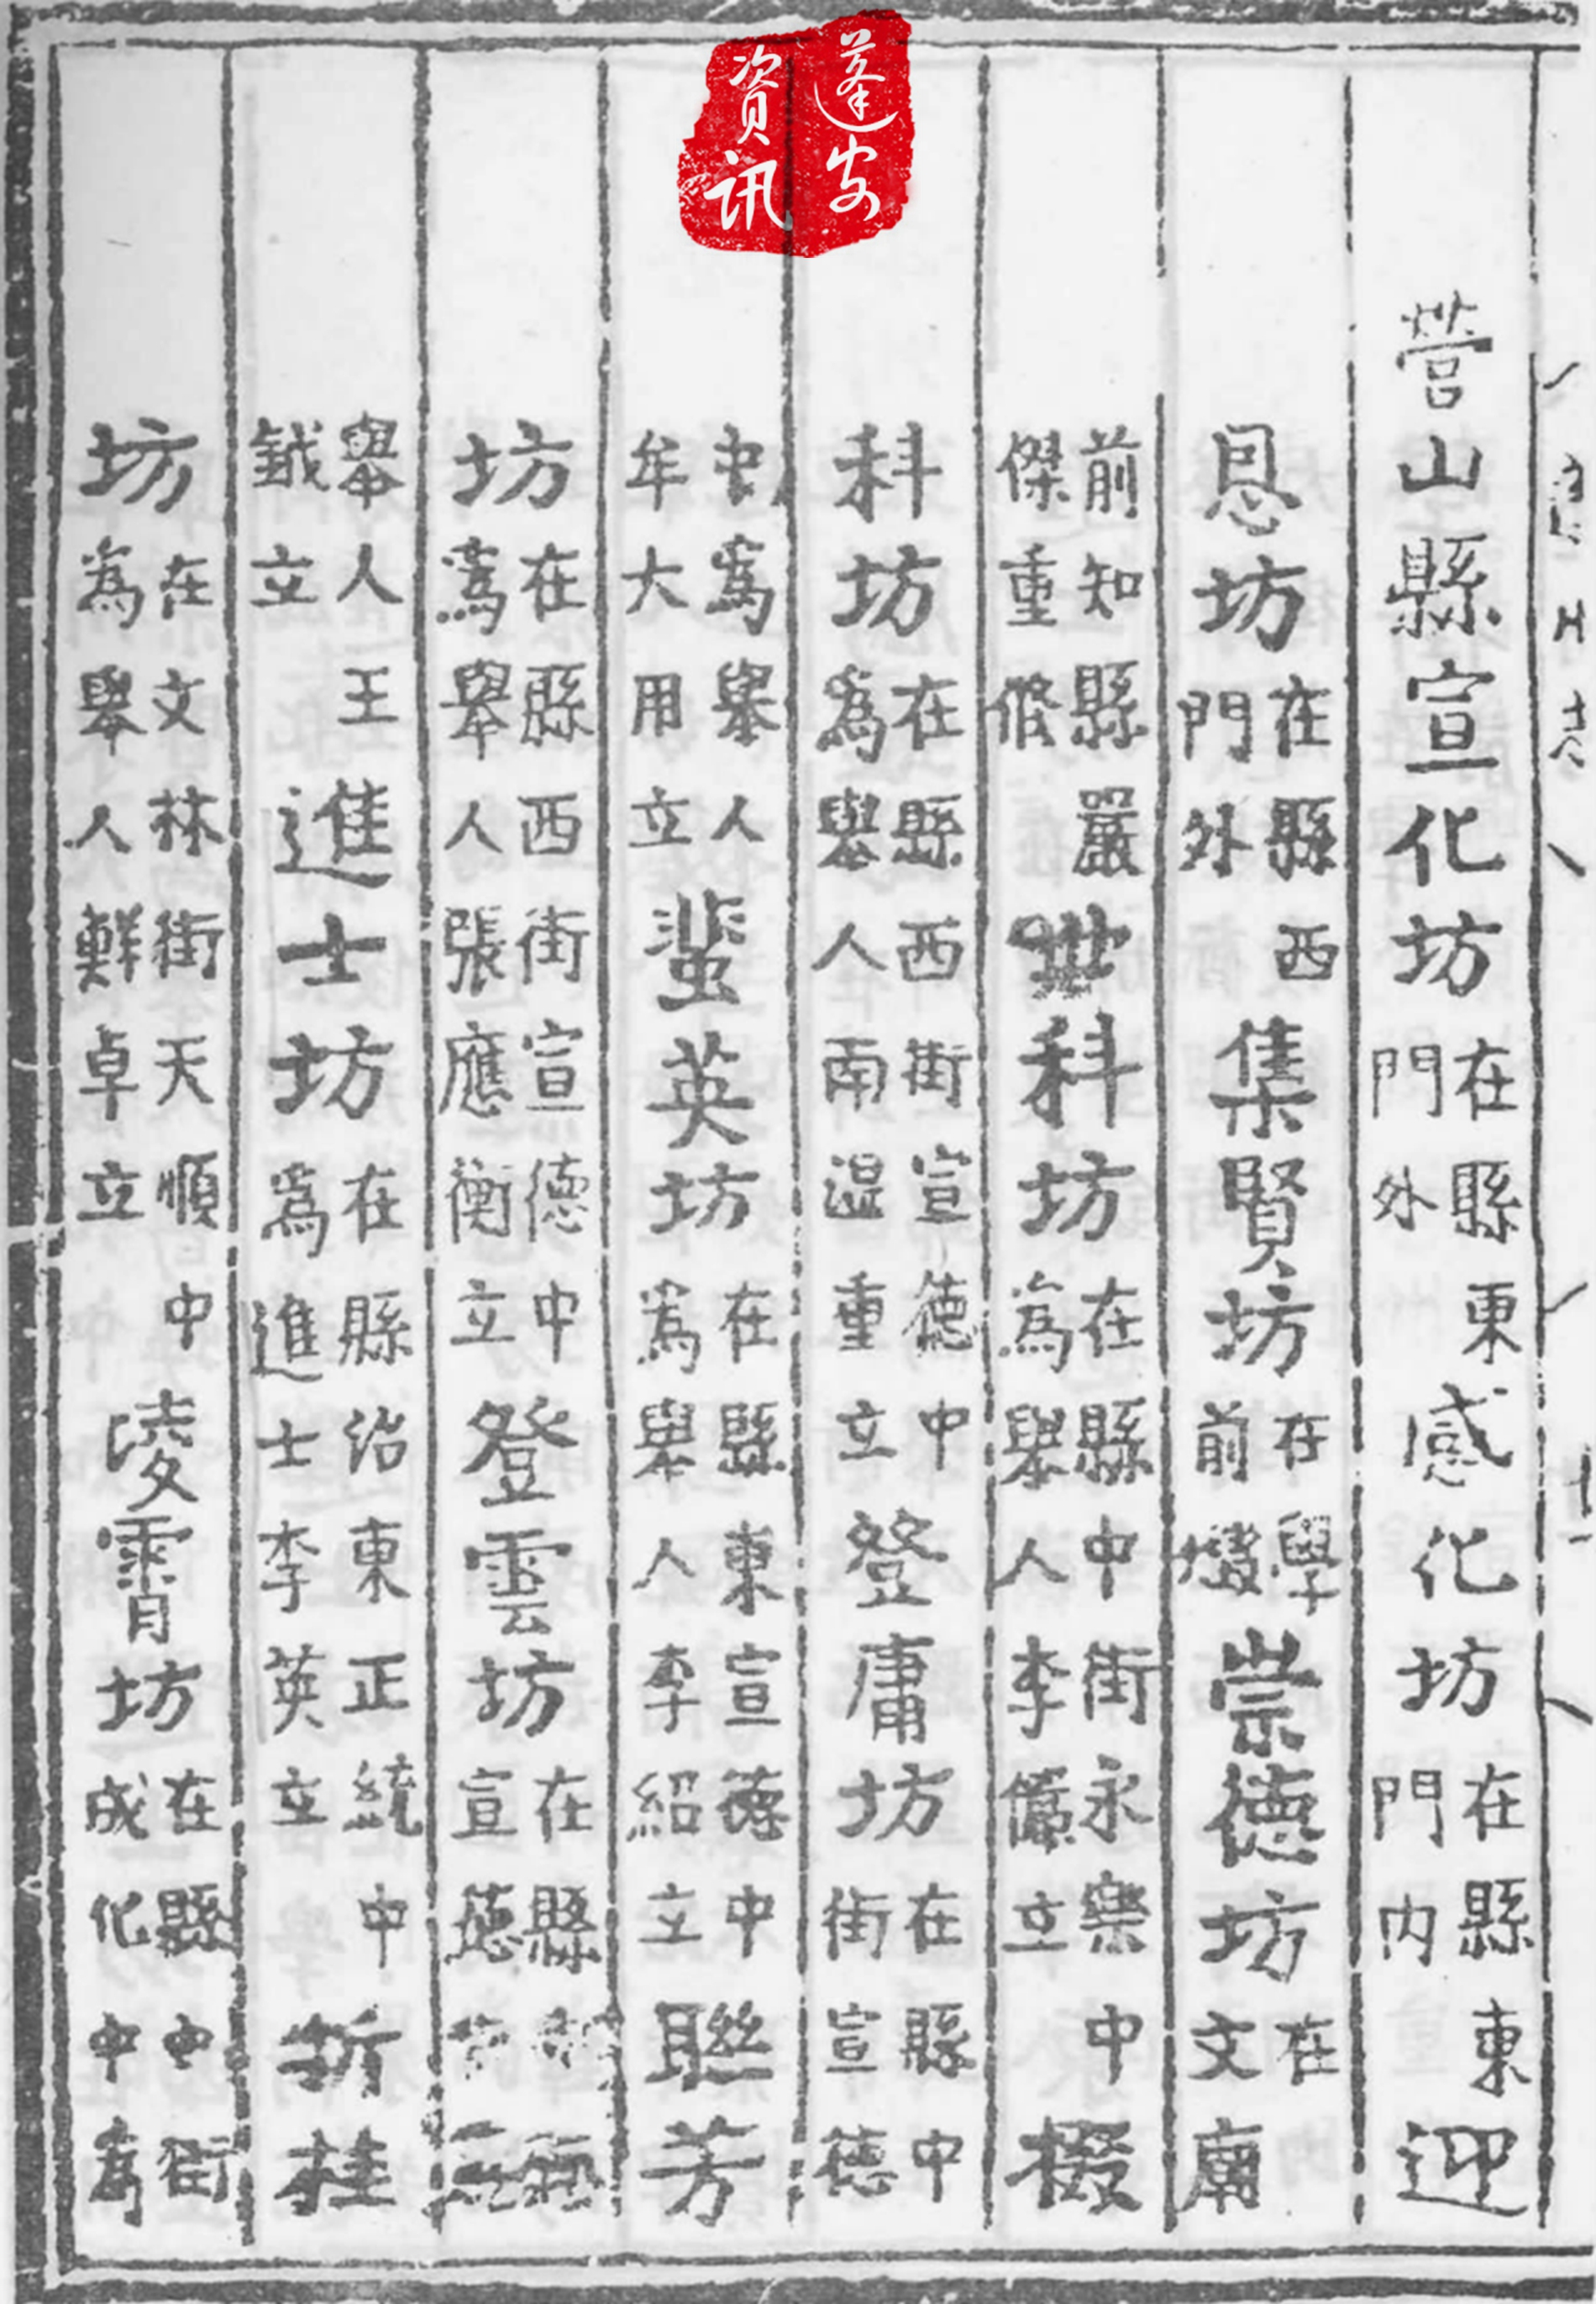 蓬安
資訊
營山縣宣化坊在縣東門外感化坊在縣東門內迎
恩坊在縣西門外集賢坊在學前崇德坊在文廟
前知縣嚴傑重脩世科坊在縣中街永樂中為舉人李儼立掇
科坊在縣西街宣德中為舉人南溫重立登庸坊在縣中街宣德
中為舉人牟大用立蜚英坊在縣東宣德中為舉人李紹立聯芳
坊在縣西街宣德中為舉人張應衡立登雲坊在縣宣德
舉人王鉞立進士坊在縣治東正統中為進士李英立折桂
坊在文林街天順中為舉人鮮卓立凌霄坊在縣中街成化中為